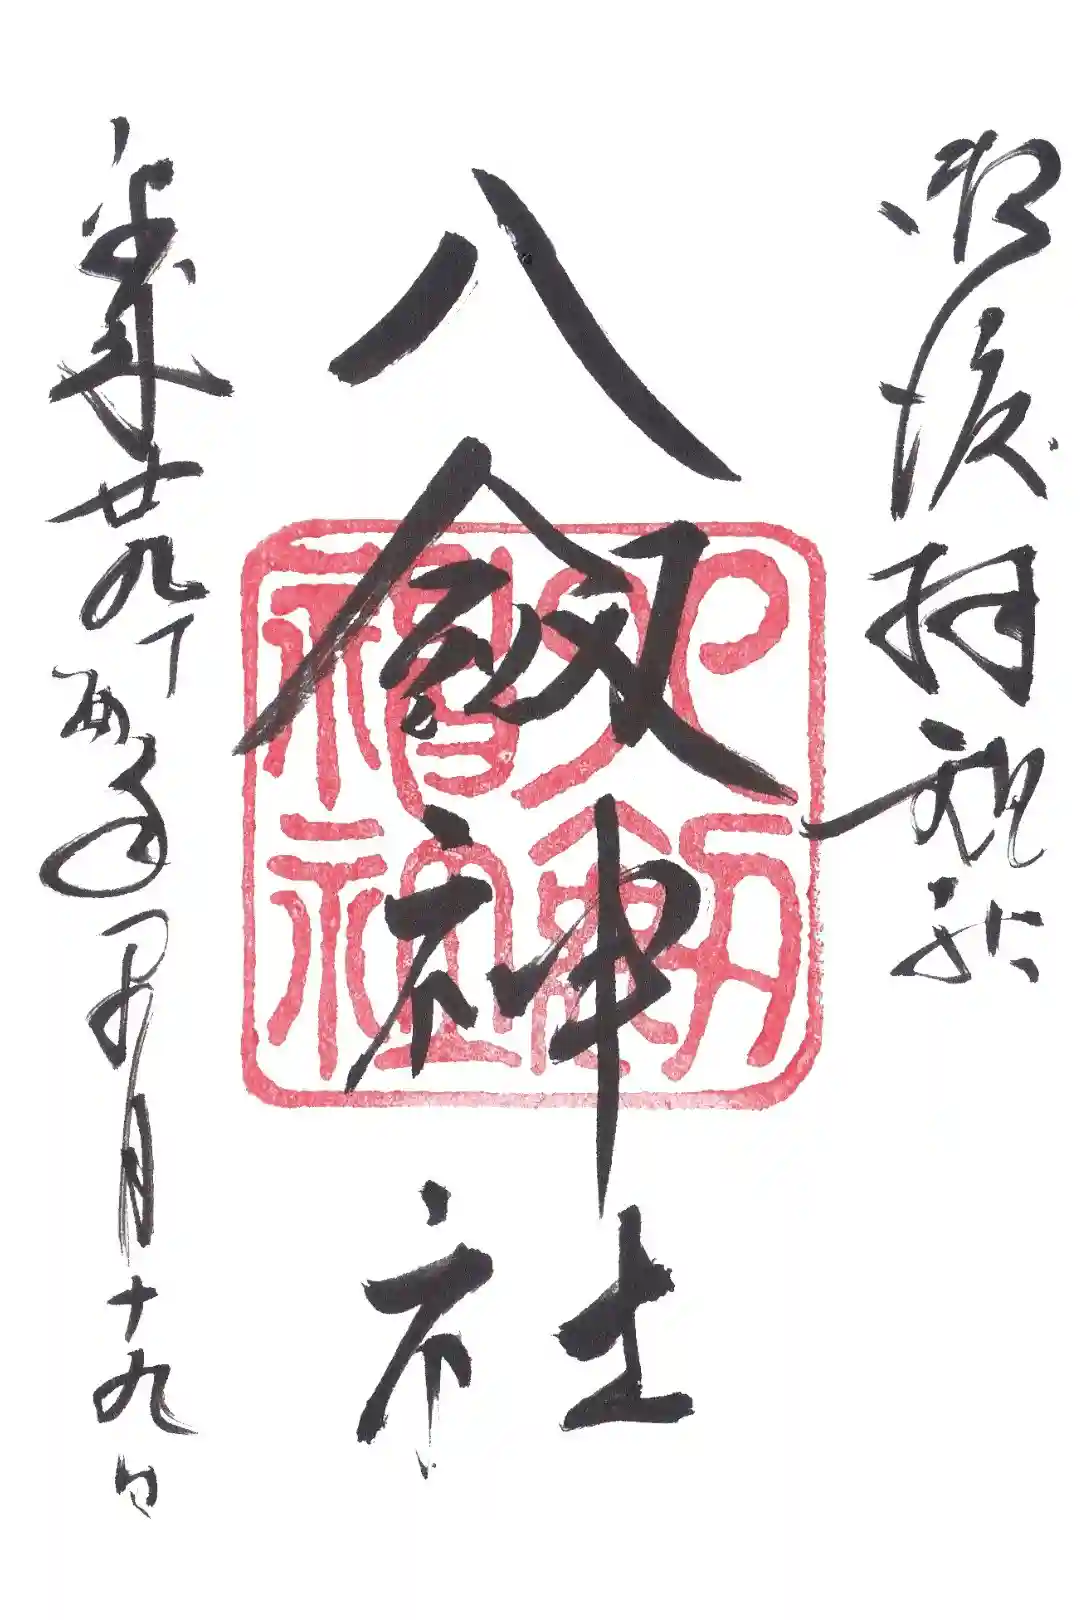 御渡拝観所
八剱神社
平成廿九丁酉年四月十九日
八剱
神社